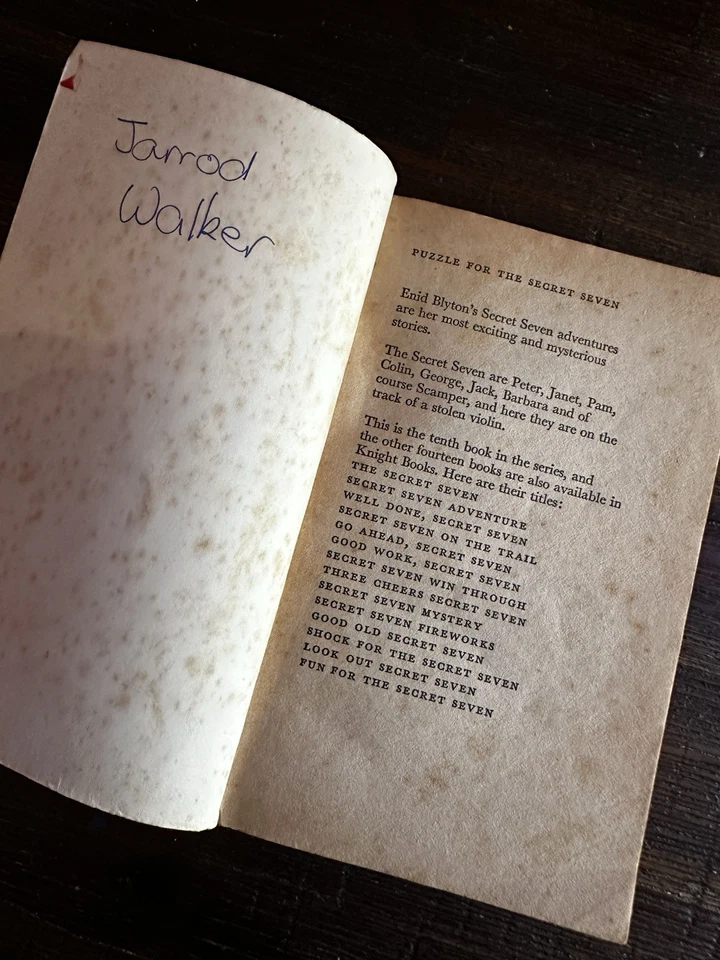 Jarrod
Walker
PUZZLE FOR THE SECRET SEVEN
Enid Blyton's Secret Seven adventures
are her most exciting and mysterious
stories.
The Secret Seven are Peter, Janet, Pam,
Colin, George, Jack, Barbara and of
course Scamper, and here they are on the
track of a stolen violin.
This is the tenth book in the series, and
the other fourteen books are also available in
Knight Books. Here are their titles:
THE SECRET SEVEN
SECRET SEVEN ADVENTURE
WELL DONE, SECRET SEVEN
SECRET SEVEN ON THE TRAIL
GO AHEAD, SECRET SEVEN
GOOD WORK, SECRET SEVEN
SECRET SEVEN WIN THROUGH
THREE CHEERS SECRET SEVEN
SECRET SEVEN MYSTERY
SECRET SEVEN FIREWORKS
GOOD OLD SECRET SEVEN
SHOCK FOR THE SECRET SEVEN
LOOK OUT SECRET SEVEN
FUN FOR THE SECRET SEVEN